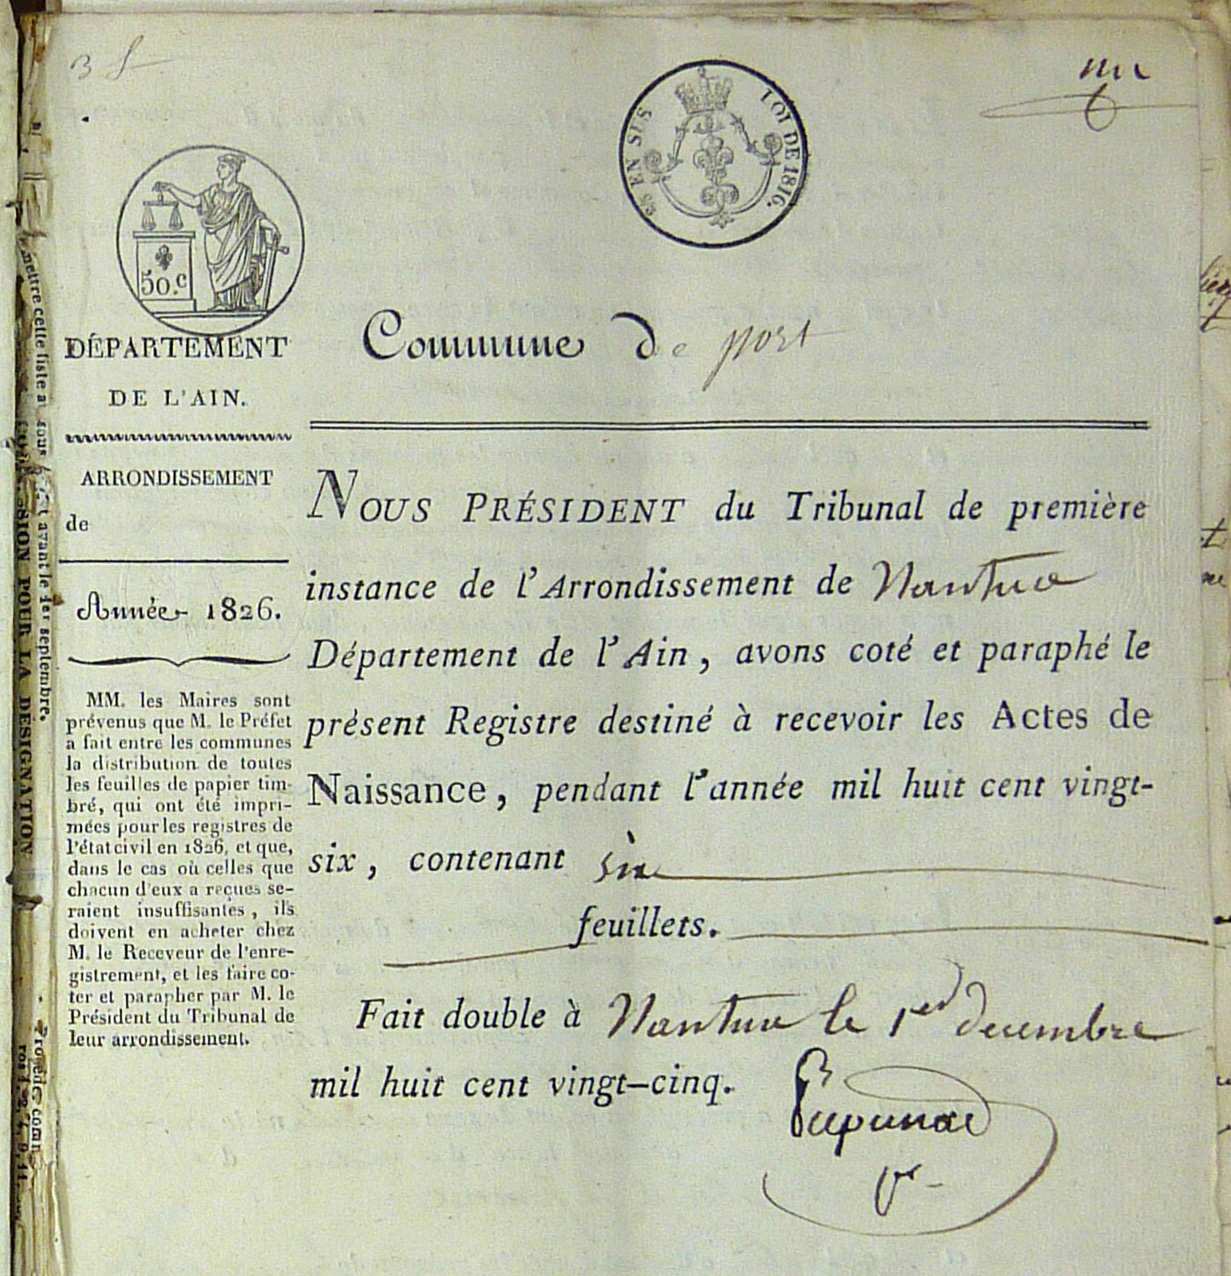 3 f
EN SUS
LOI DE 1816.
50.c
DÉPARTEMENT
DE L'AIN.
ARRONDISSEMENT
de
Année 1826.
MM. les Maires sont
prévenus que M. le Préfet
a fait entre les communes
la distribution de toutes
les feuilles de papier tim-
bré, qui ont été impri-
mées pour les registres de
l'état civil en 1826, et que,
dans le cas où celles que
chacun d'eux a reçues se-
raient insuffisantes, ils
doivent en acheter chez
M. le Receveur de l'enre-
gistrement, et les faire co-
ter et parapher par M. le
Président du Tribunal de
leur arrondissement.
Commune de port
NOUS PRÉSIDENT du Tribunal de première
instance de l'Arrondissement de Nantua
Département de l'Ain, avons coté et paraphé le
présent Registre destiné à recevoir les Actes de
Naissance, pendant l'année mil huit cent vingt-
six, contenant six
feuillets.
Fait double à Nantua le 1er decembre
mil huit cent vingt-cinq.
mettre cette liste au sous
et avant le 1er septembre.
SION POUR LA DESIGNATION